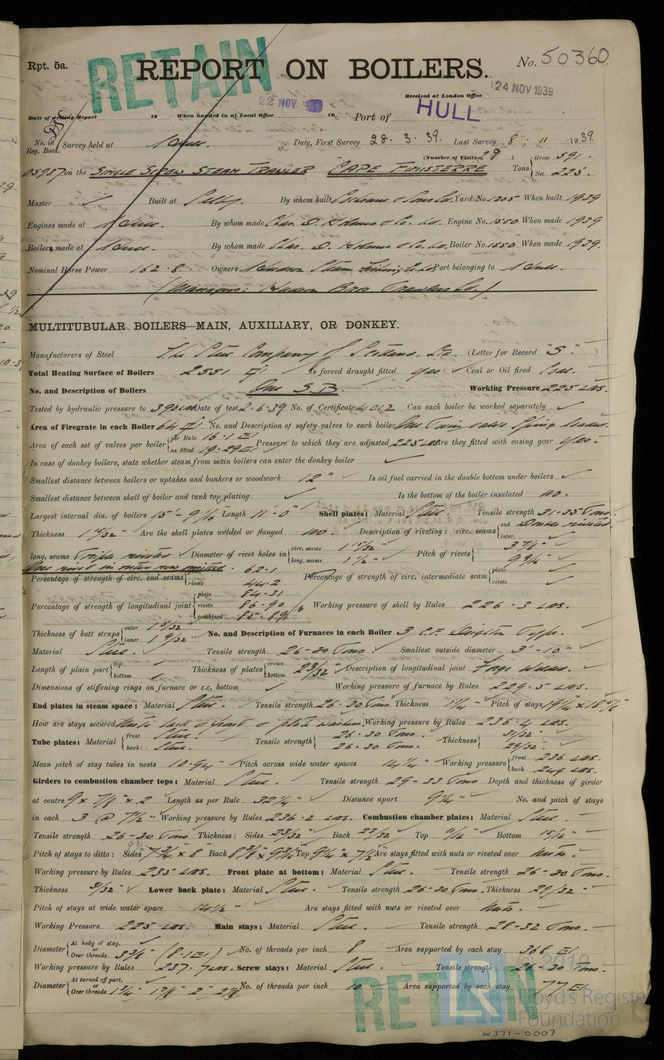 Rpt. 5a.
RETAIN
REPORT ON BOILERS.
No. 50360
Received at London Office
24 NOV 1939
22 NOV 1939
Date of writing Report 19 When handed in at Local Office 19 Port of HULL
No. in Reg. Book. Survey held at Hull Date, First Survey 28.3.39. Last Survey 8-11-1939.
(Number of Visits 29)
on the SINGLE SCREW STEAM TRAWLER CAPE FINISTERRE Tons { Gross 591. Net 225.
Master Built at Selby By whom built Cochrane & Sons Ltd. Yard No. 1205 When built 1939
Engines made at Hull By whom made Chas. D. Holmes & Co. Ltd. Engine No. 1550 When made 1939
Boilers made at Hull By whom made Chas. D. Holmes & Co. Ltd. Boiler No. 1550 When made 1939.
Nominal Horse Power 162.8 Owners Hudson Steam Fishing Co. Ltd Port belonging to Hull.
(Managers: Hudson Bros Trawlers Ltd.)
MULTITUBULAR BOILERS—MAIN, AUXILIARY, OR DONKEY.
Manufacturers of Steel The Steel Company of Scotland. Ltd. (Letter for Record "S")
Total Heating Surface of Boilers 2551 Is forced draught fitted yes Coal or Oil fired Coal.
No. and Description of Boilers One S.B. Working Pressure 225 lbs.
Tested by hydraulic pressure to 390 lbs Date of test 2.6.39 No. of Certificate 4012 Can each boiler be worked separately
Area of Firegrate in each Boiler 64 No. and Description of safety valves to each boiler One Twin valve Spring loaded.
Area of each set of valves per boiler { per Rule 16.1 as fitted 19.29 Pressure to which they are adjusted 225 lbs Are they fitted with easing gear yes.
In case of donkey boilers, state whether steam from main boilers can enter the donkey boiler
Smallest distance between boilers or uptakes and bunkers or woodwork 12" Is oil fuel carried in the double bottom under boilers
Smallest distance between shell of boiler and tank top plating Is the bottom of the boiler insulated no.
Largest internal dia. of boilers 15'-9 7/16" Length 11'-0" Shell plates: Material Steel Tensile strength 31-35 Tons.
Thickness 1 15/32" Are the shell plates welded or flanged no. Description of riveting: circ. seams { end Double riveted.
long. seams Treble riveted Diameter of rivet holes in { circ. seams 1 15/32 long. seams 1 1/2" Pitch of rivets { 3 7/8" 9 9/16"
One rivet in outer row omitted.
Percentage of strength of circ. end seams { plate 62.1 rivets 44.2 Percentage of strength of circ. intermediate seam { plate rivets
Percentage of strength of longitudinal joint { plate 84.31 rivets 86.90 combined Working pressure of shell by Rules 226.3 lbs.
Thickness of butt straps { outer inner No. and Description of Furnaces in each Boiler 3 C.F. Deighton Type.
Material Steel. Tensile strength 26-30 Tons Smallest outside diameter 3'-10"
Length of plain part { top bottom Thickness of plates { crown bottom 23/32" Description of longitudinal joint Forge Welded.
Dimensions of stiffening rings on furnace or c.c. bottom Working pressure of furnace by Rules 229.5 lbs.
End plates in steam space: Material Steel Tensile strength 26-30 Tons. Thickness 1 1/4" Pitch of stays 19 1/4" x 18 5/8"
How are stays secured Working pressure by Rules 236.4 lbs.
Tube plates: Material { front Steel. back Steel. Tensile strength { 26-30 Tons. 26-30 Tons. Thickness { 31/32" 29/32"
Mean pitch of stay tubes in nests 10.94" Pitch across wide water spaces 14 1/4" Working pressure { front 236 lbs. back 249 lbs.
Girders to combustion chamber tops: Material Steel Tensile strength 29-33 Tons Depth and thickness of girder
at centre 9 x 7/8" x 2 Length as per Rule 32 1/4" Distance apart 9 1/4" No. and pitch of stays
in each 3 @ 7 3/4" Working pressure by Rules 236.2 lbs. Combustion chamber plates: Material Steel.
Tensile strength 26-30 Tons Thickness: Sides 23/32 Back 23/32 Top Bottom 15/16"
Pitch of stays to ditto: Sides Back Top Are stays fitted with nuts or riveted over Nuts.
Working pressure by Rules 235 lbs. Front plate at bottom: Material Steel. Tensile strength 26-30 Tons.
Thickness 31/32" Lower back plate: Material Steel. Tensile strength 26-30 Tons. Thickness 29/32"
Pitch of stays at wide water space 14 1/2" Are stays fitted with nuts or riveted over Nuts.
Working Pressure 225 lbs. Main stays: Material Steel Tensile strength 28-32 Tons.
Diameter { At body of stay, or Over threads 3 3/8" No. of threads per inch 8 Area supported by each stay 366
Working pressure by Rules 237.7 lbs. Screw stays: Material Steel Tensile strength 26-30 Tons.
Diameter { At turned off part, or Over threads 1 3/4" 1 7/8" 2" 2 1/8" No. of threads per inch 10 Area supported by each stay 77
RETAIN
© 2019
Lloyd's Register
Foundation
W371-0007